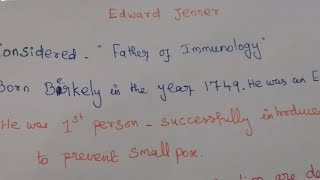 Edward Jenner
Considered - "Father of Immunology"
Born Birkely in the year 1749. He was an E
He was 1st person - successfully introduce
to prevent small pox.